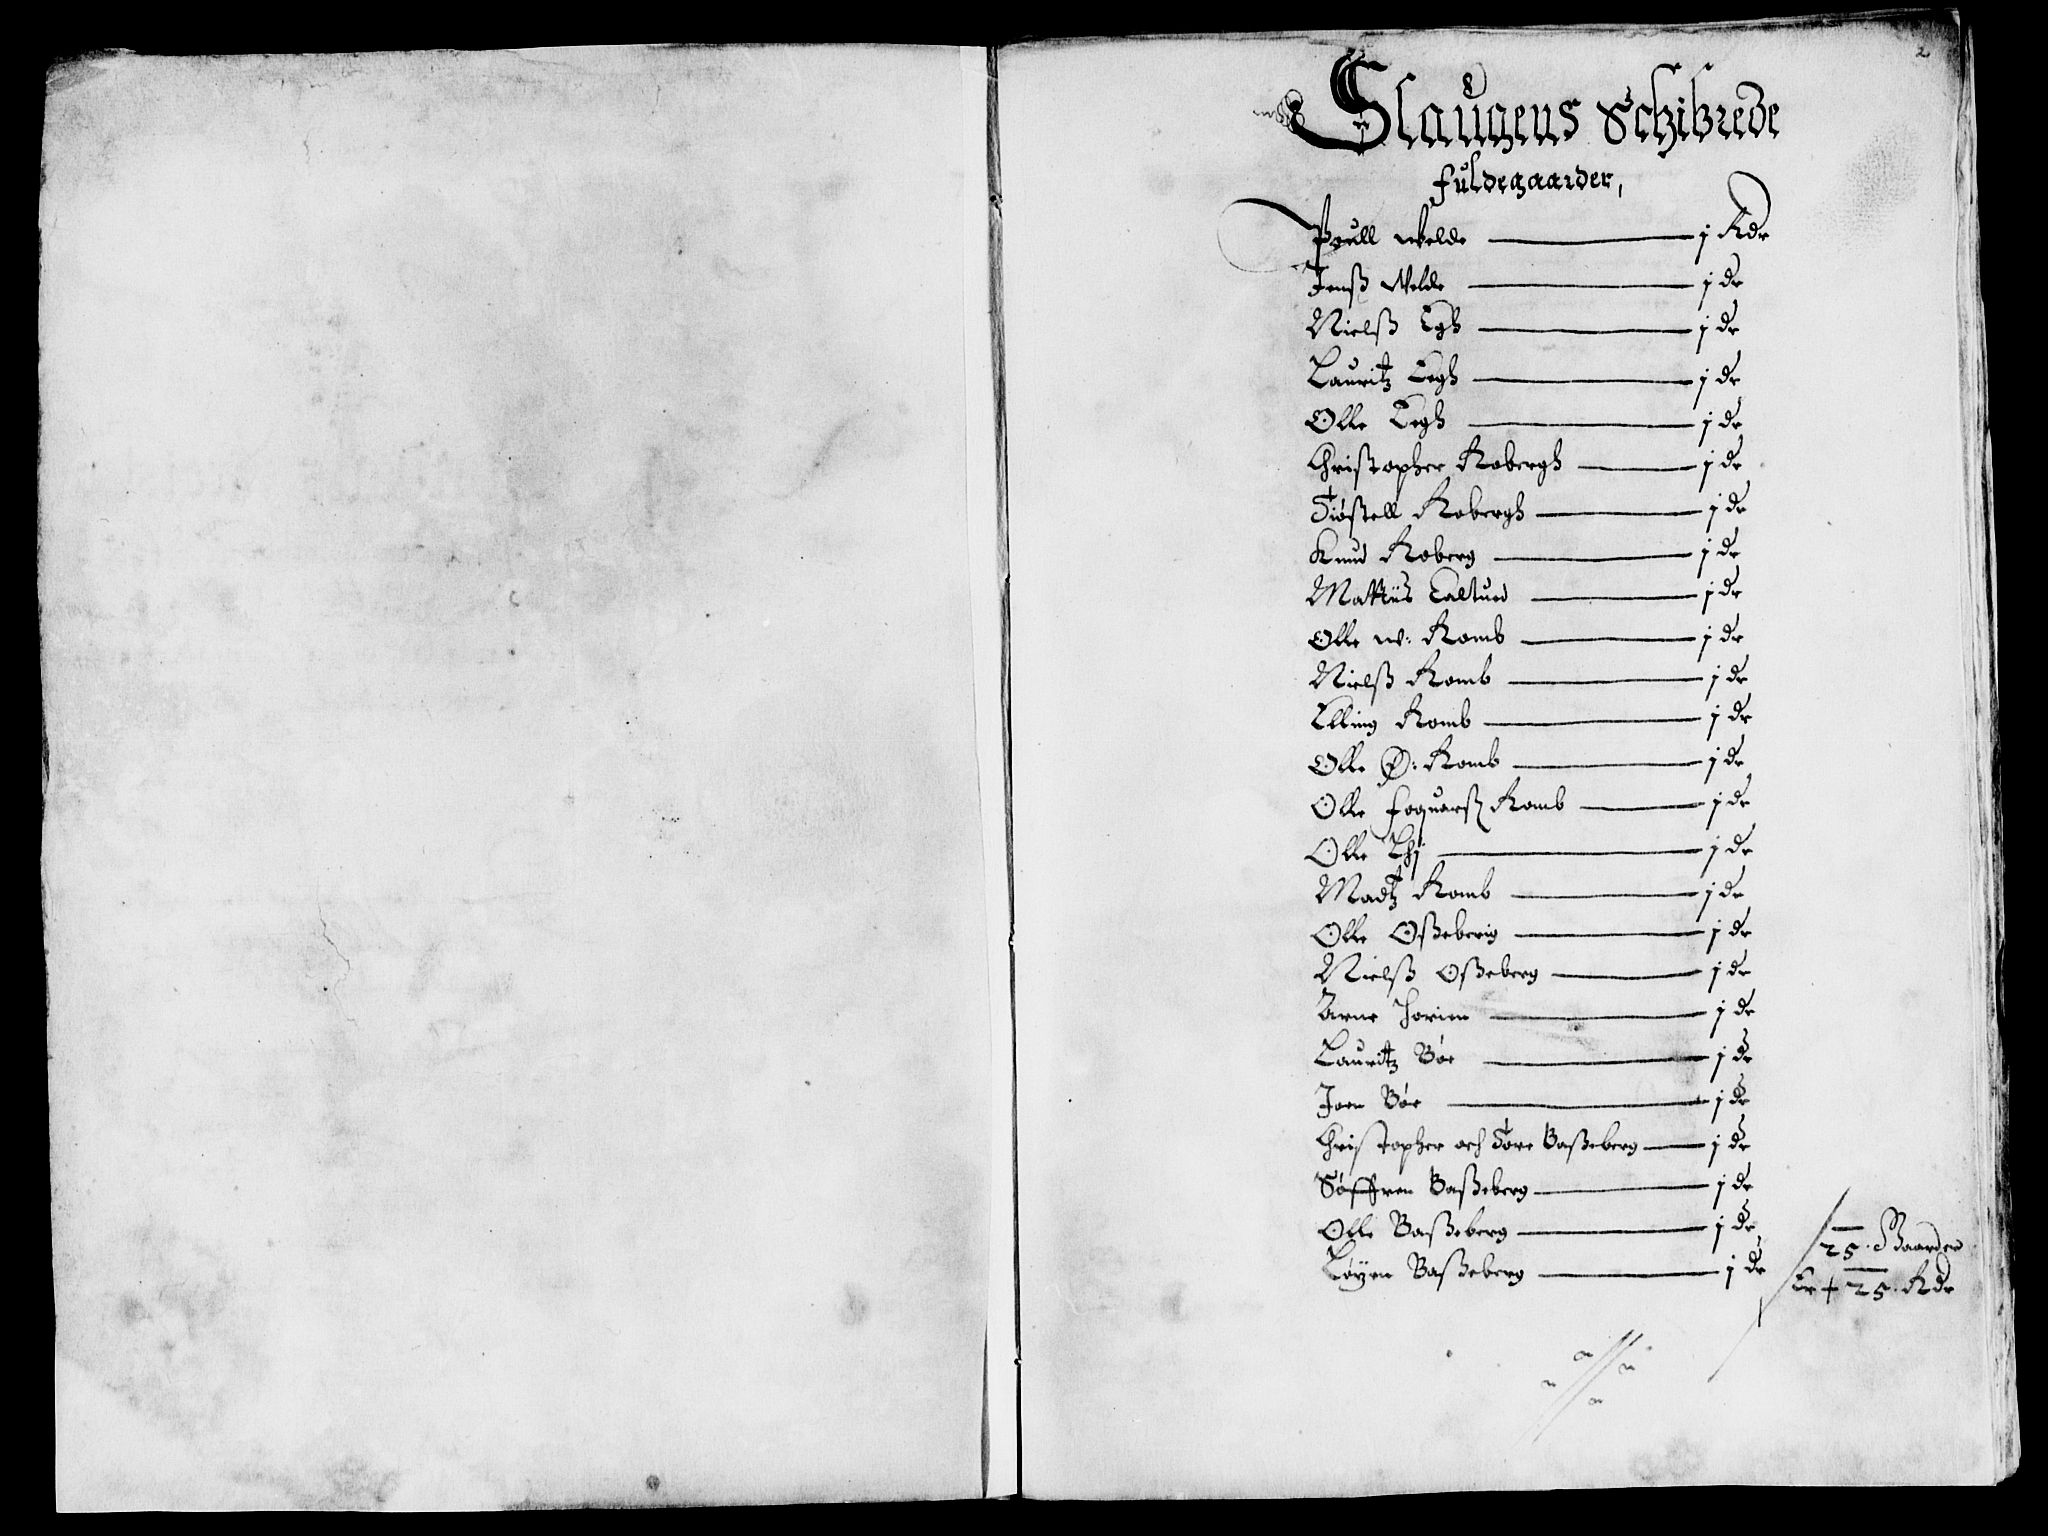 2
Slaugens Schibrede
fuldegaarder,
Poull Welde — j Rdr
Jenß Welde — j dr
Nielß Egh — j dr
Lauritz Eegh — j dr
Olle Eegh — j dr
Christopher Robergh — j dr
Tiøstell Robergh — j dr
Knud Roberg — j dr
Mattiis — j dr
Olle w: Romb — j dr
Nielß Romb — j dr
Elling Romb — j dr
Olle Ø: Romb — j dr
Olle foguarß Romb — j dr
Olle — j dr
Madtz Romb — j dr
Olle Oßeberig — j dr
Nielß Oßeberg — j dr
Arne Horien — j dr
Lauritz Bøe — j dr
Joen Bøe — j dr
Christopher och Tore Baßeberg — j dr
Søffren Baßeberg — j dr
Olle Baßeberg — j dr
Løyen Baßeberg — j dr
25. Gaarder
Er + 25. Rdr